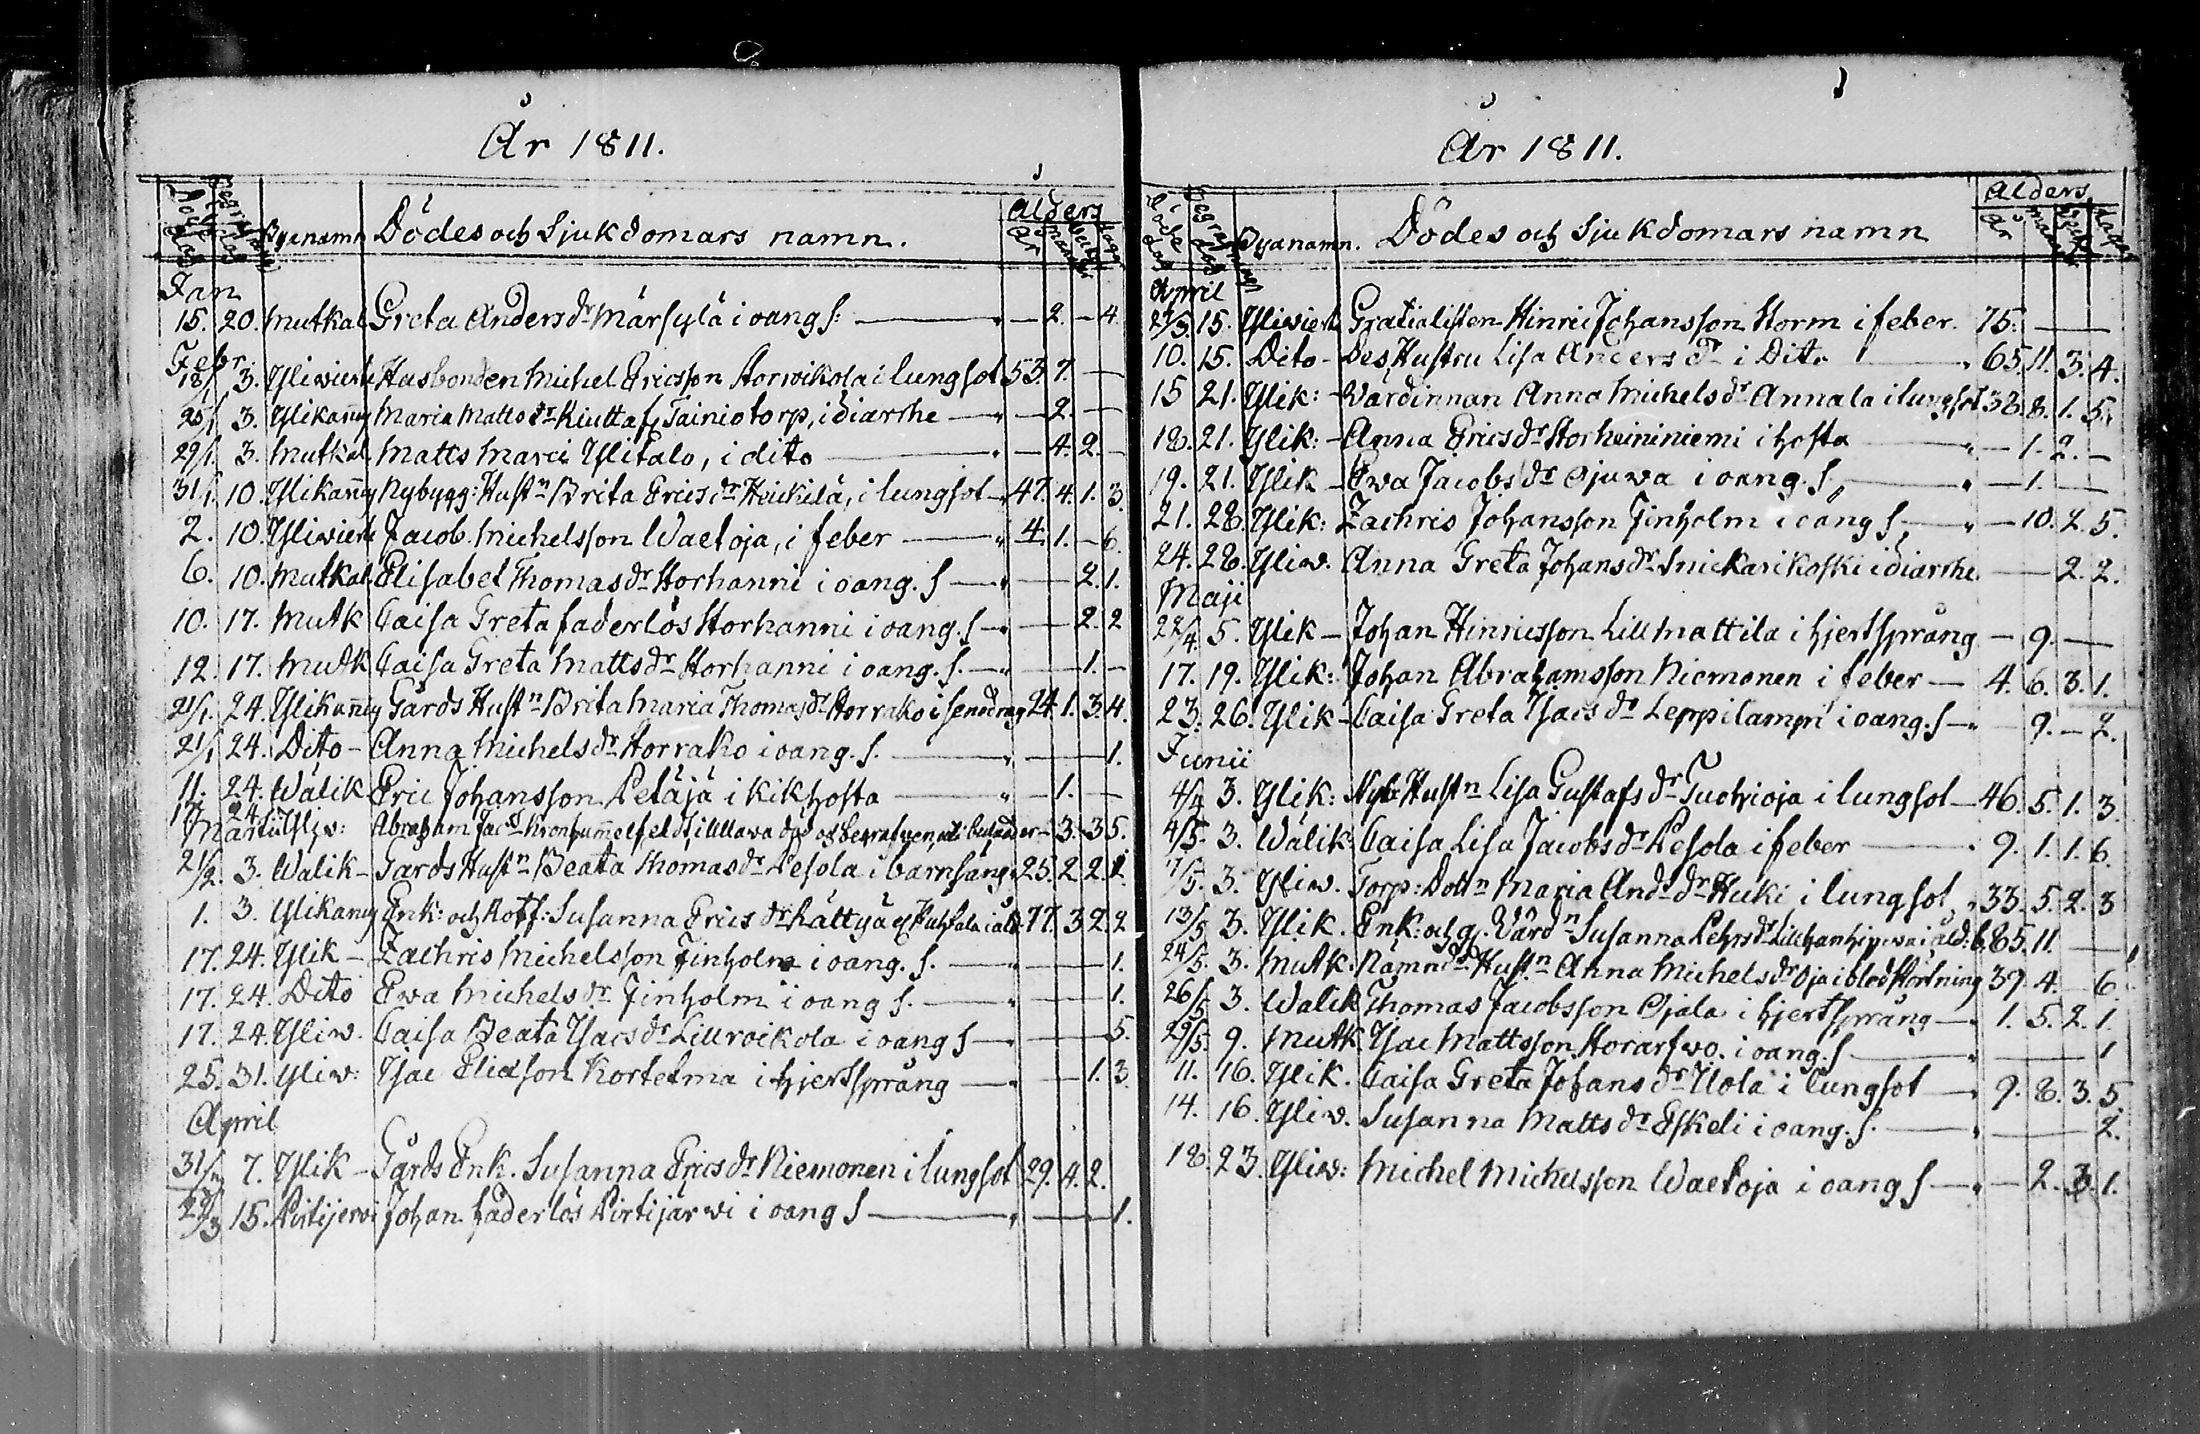 År 1811.
Döde dag Begrafnings dag Byanamn Dödes och Sjukdomars namn. Ålders År månad Veckor dagar
Jan
15. 20. Mutkal Greta Anders dr Märsylä i oang s: — 2. — 4.
Febr.
18/1 3. Yliviesk Husbonden Michel Ericsson Storvikola i lungsot 53. 7. —
25/1 3. Ylikanng Maria Matts dr Kiutta Tainio torp, i diarrhe — 2. —
29/1. 3. Mutkal Matts Marci Ylitalo, i dito — 4. 2. —
31/1. 10. Ylikanng Nybygg: Hustn Brita Erics dr Heickilä, i lungsot 47. 4. 1. 3.
2. 10. Yliviesk Jacob Michelsson Waetoja, i feber 4. 1. — 6.
6. 10. Mutkal Elisabet Thomas dr Storhanni i oang. s — 2. 1.
10. 17. Mutk Caisa Greta faderlös Storhanni i oang. s — 2. 2
12. 17. Mutk Caisa Greta Matts dr Storhanni i oang. s. — 1. —
21/1. 24. Ylikanng Gårds Hustn Brita Maria Thomas dr Storrako i senedrag 24. 1. 3. 4.
21/1 24. Dito — Anna Michels dr Storrako i oang. s. — 1.
11. 24. Wälik Eric Johansson Petäjä i kikhosta — 1. —
17. 24. Yliw: Abraham Jacs — 3. — 3 5.
Martii
21/2. 3. Wälik — Gårds Hustn Beata Thomas dr Pesola i barnsäng. 25. 2 2. 1.
1. 3. Ylikanng Enk: och Rotf: Susanna Erics dr Rättyä 77. 3 2. 2
17. 24. Ylik — Zachris Michelsson Finholm i oang. s. — 1.
17. 24. Dito Ewa Michels dr Finholm i oang s. — 1.
17. 24. Yliw. Caisa Beata Isacs dr Lillvoikola i oang s — 5.
25. 31. Yliw: Isac Eliasson Kortetma i hjertsprång — 1. 3.
April
31/3 7. Ylik — Gårds Enk. Susanna Erics dr Niemonen i lungsot 29. 4. 2.
29/3 15. Pirtijervi Johan faderlös Pirtijärvi i oang s — 1.
År 1811.
Döde dag Begrafnings dag Byanamn. Dödes och Sjukdomars namn Ålders År månad Veckor dagar
April
27/3. 15. Yliviesk Gratialisten Hinric Johansson Storm i feber. 75. —
10. 15. Dito — Des Hustru Lisa Anders dr i Dito 65. 11. 3. 4.
15 21. Ylik: — Wärdinnan Anna Michels dr Annala i lungsot 38. 8. 1. 5.
18. 21. Ylik: — Anna Erics dr Storheininiemi i hosta — 1. 2. —
19. 21. Ylik — Ewa Jacobs dr Ojuva i oang. s, — 1. —
21. 28. Ylik: Zachris Johansson Finholm i oang s, — 10. 2. 5.
24. 28. Yliw. Anna Greta Johans dr Snickarikoski i diarrhe. — 2. 2.
Maji
28/4. 5. Ylik — Johan Hinricsson Lillmattila i hjertsprång — 9. —
17. 19. Ylik: Johan Abrahamsson Niemonen i feber — 4. 6. 3. 1.
23. 26. Ylik — Caisa Greta Isacs dr Leppilampi i oang. s — 9. — 2.
Junii
4/4 3. Ylik: Nyb: Hustn Lisa Gustafs dr Tuohioja i lungsot — 46. 5. 1. 3.
4/5. 3. Wälik: Caisa Lisa Jacobs dr Pesola i feber 9. 1. 1. 6.
7/5. 3. Yliw. Torp: Dottn Maria And. dr Huki i lungsot 33. 5. 2. 3
13/5 3. Ylik. Enk: och g. Värdn Susanna Pehrs dr 85. 11. —
24/5. 3. Mutk: Nämnd: Hustn Anna Michels dr Oja i blodstörtning 39. 4. — 6.
26/5 3. Wälik Thomas Jacobsson Ojala i hjertsprång — 1. 5. 2. 1.
29/5. 9. Mutk Isac Mattsson Storarfvo. i oang. s — 1
11. 16. Ylik. Caisa Greta Johans dr Uola i lungsot — 9. 8. 3. 5.
14. 16. Yliw. Susanna Matts dr Eskeli i oang. s. — 2.
18. 23. Yliw: Michel Michelsson Waetoja i oang s — 2. 3. 1.